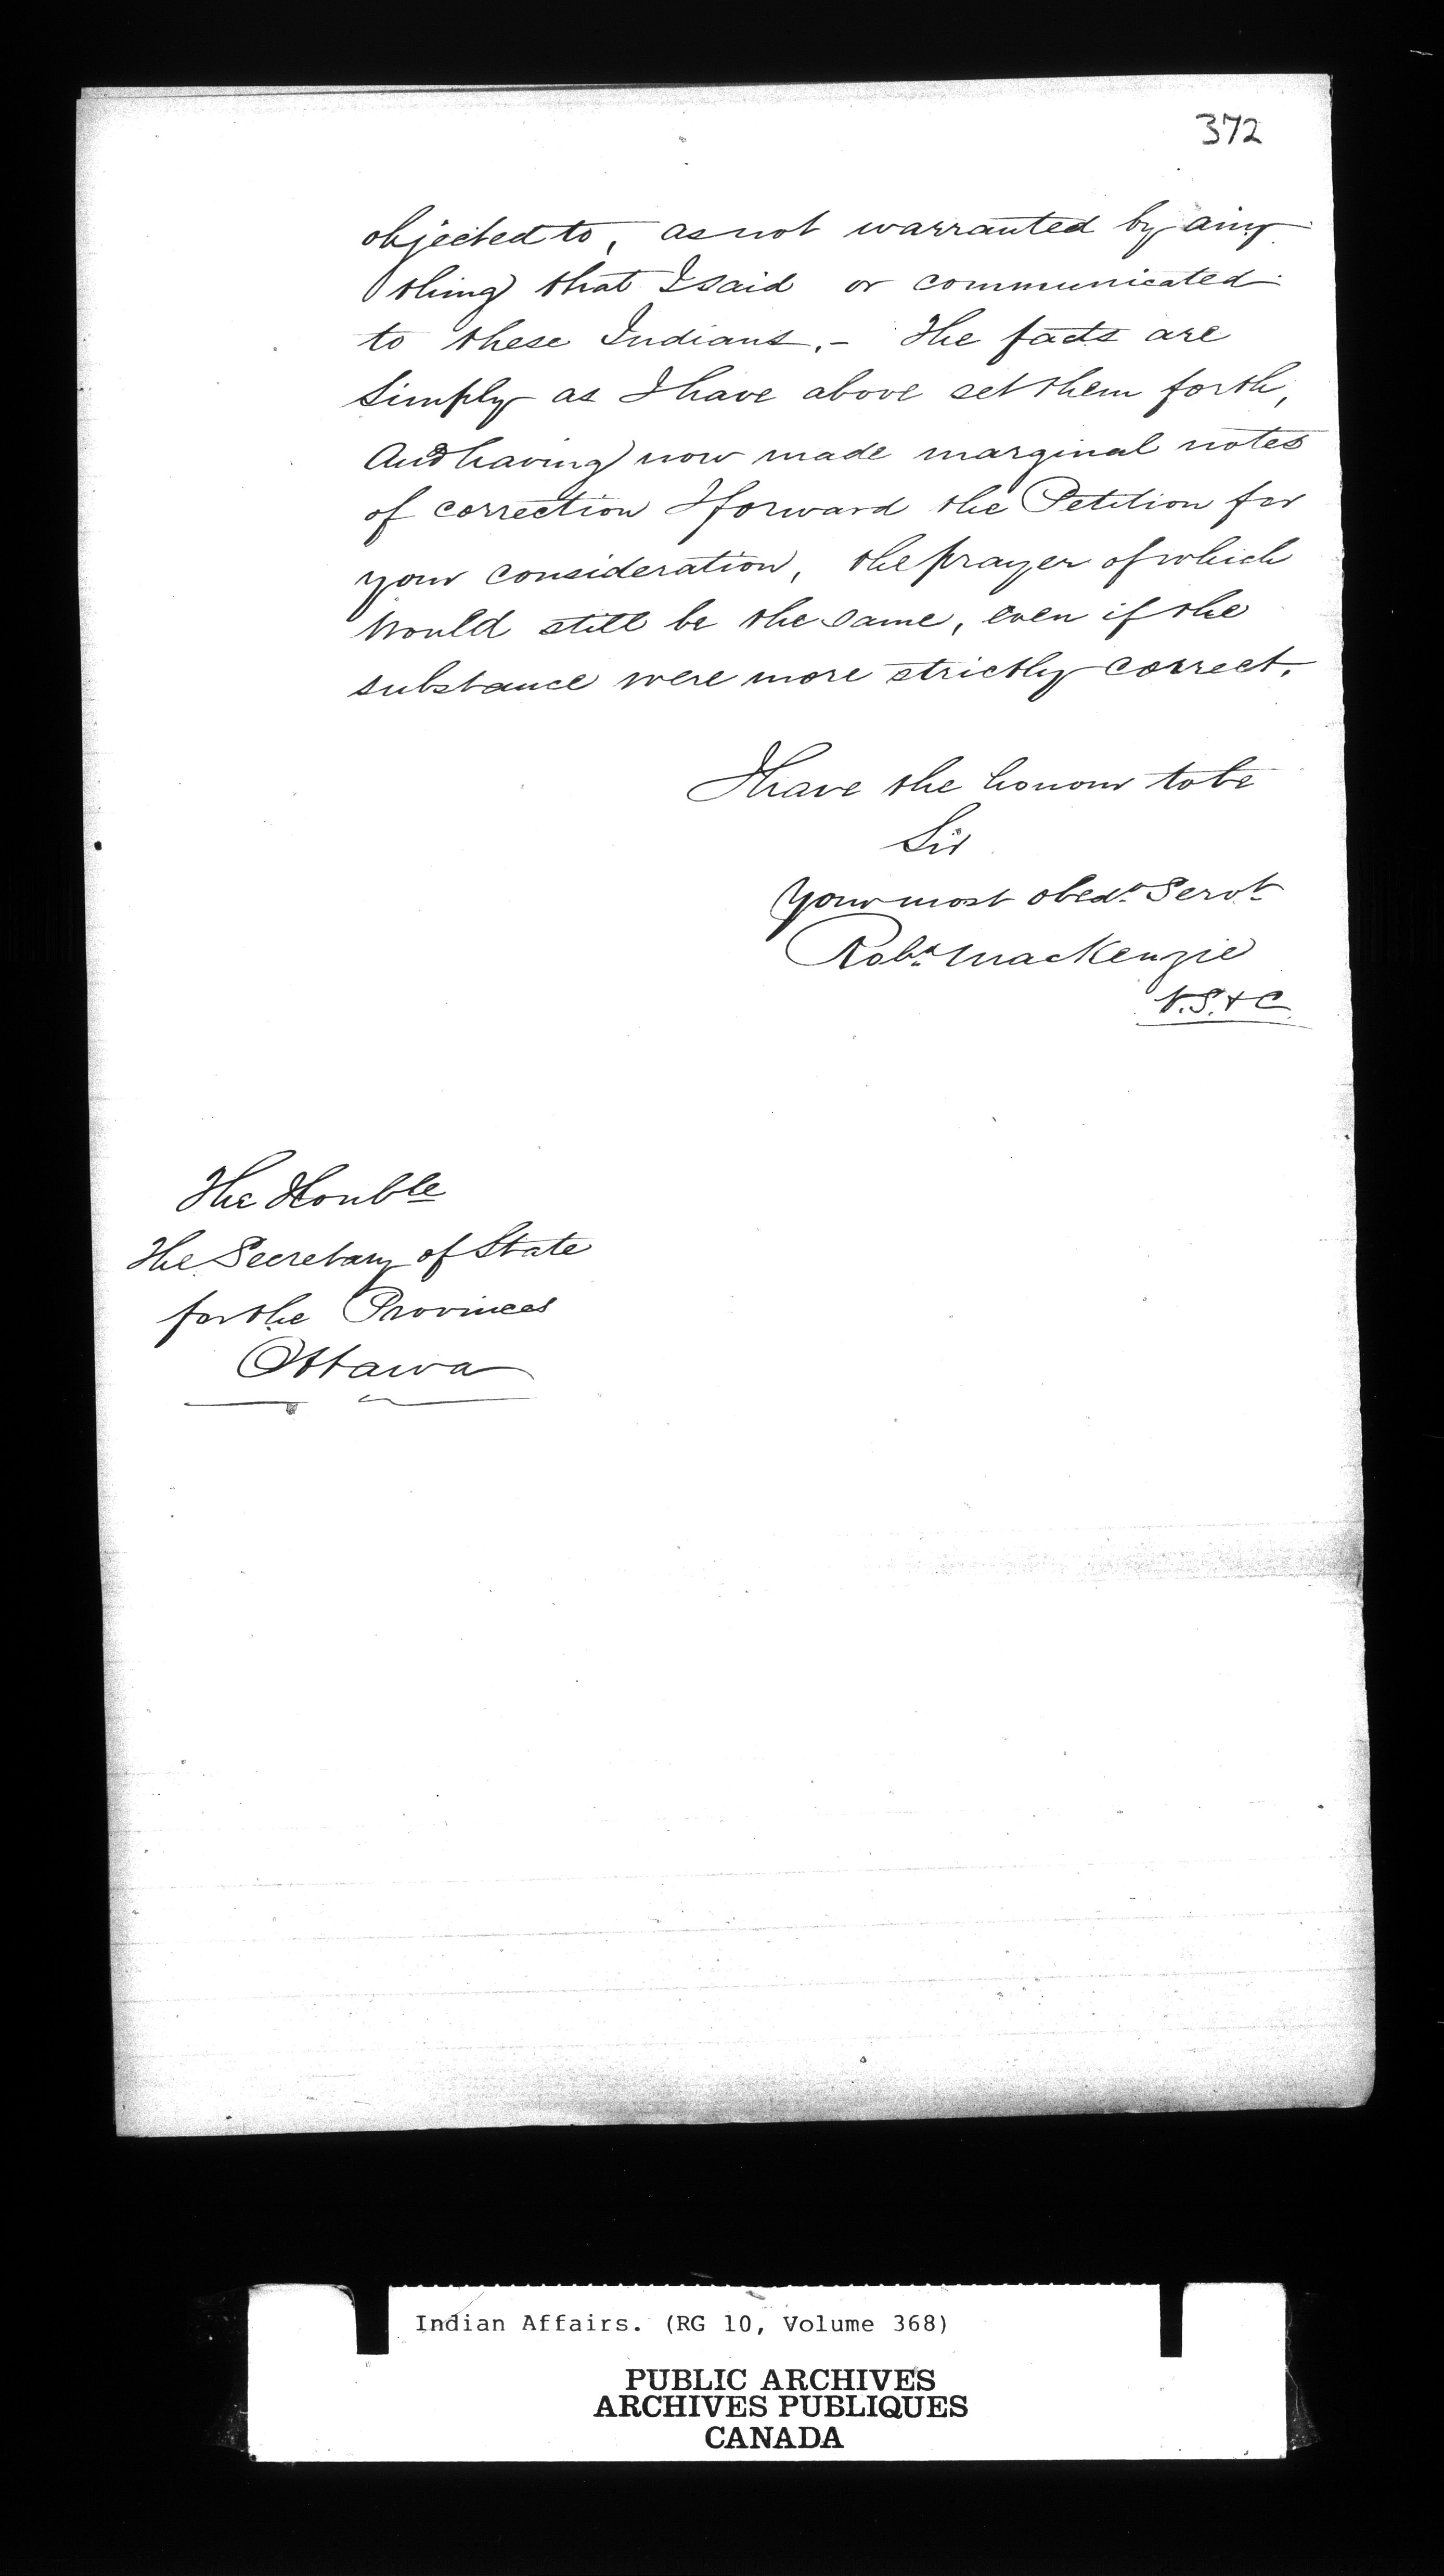 372
objected to, as not warranted by any
thing that I said or communicated
to these Indians. - The facts are
simply as I have above set them forth,
And having now made marginal notes
of correction I forward the Petition for
your consideration, the prayer of which
Would still be the same, even if the
substance were more strictly correct.
I have the honour to be
Sir
Your most obedt. Servt.
Robt. Mackenzie
V.S. & C.
The Honble
The Secretary of State
for the Provinces
Ottawa
Indian Affairs. (RG 10, Volume 368)
PUBLIC ARCHIVES
ARCHIVES PUBLIQUES
CANADA